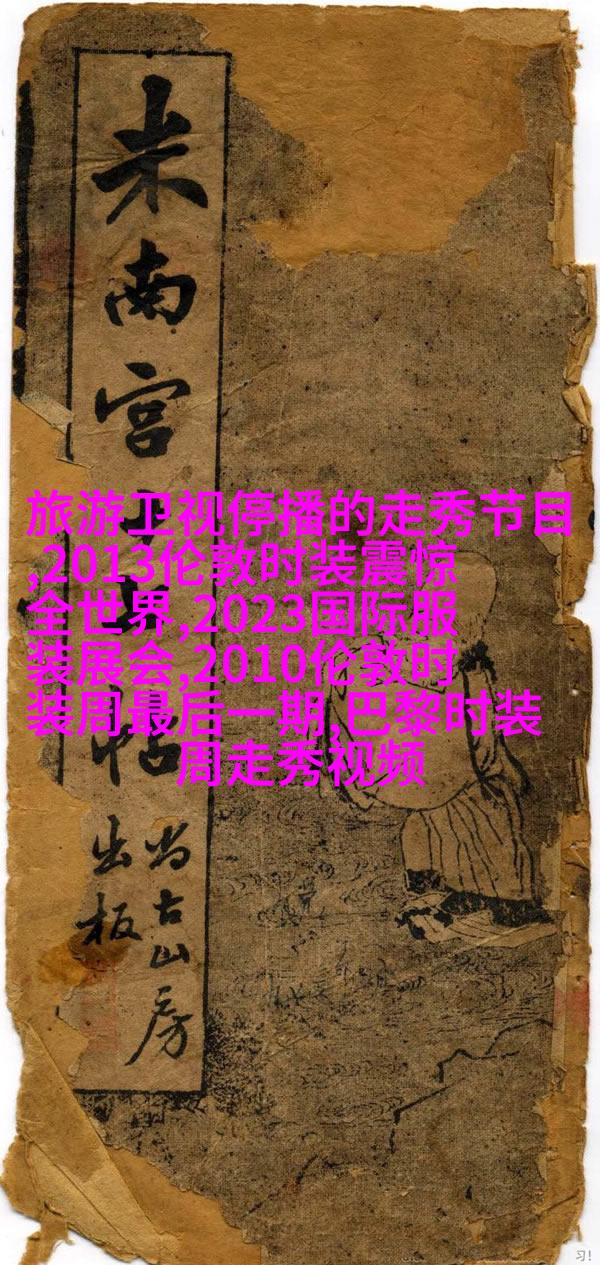 米南宫
帖
尚古山房
出板
旅游卫视停播的走秀节目
,2013伦敦时装震惊
全世界,2023国际服
装展会,2010伦敦时
装周最后一期,巴黎时装
周走秀视频
习!